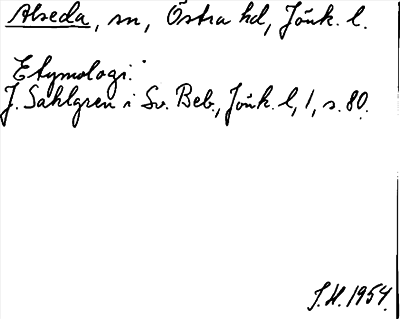 Alseda, sn, Östra hd, Jönk. l.
Etymologi:
J. Sahlgren i Sv. Beb., Jönk. l, 1, s. 80.
J.H. 1954.